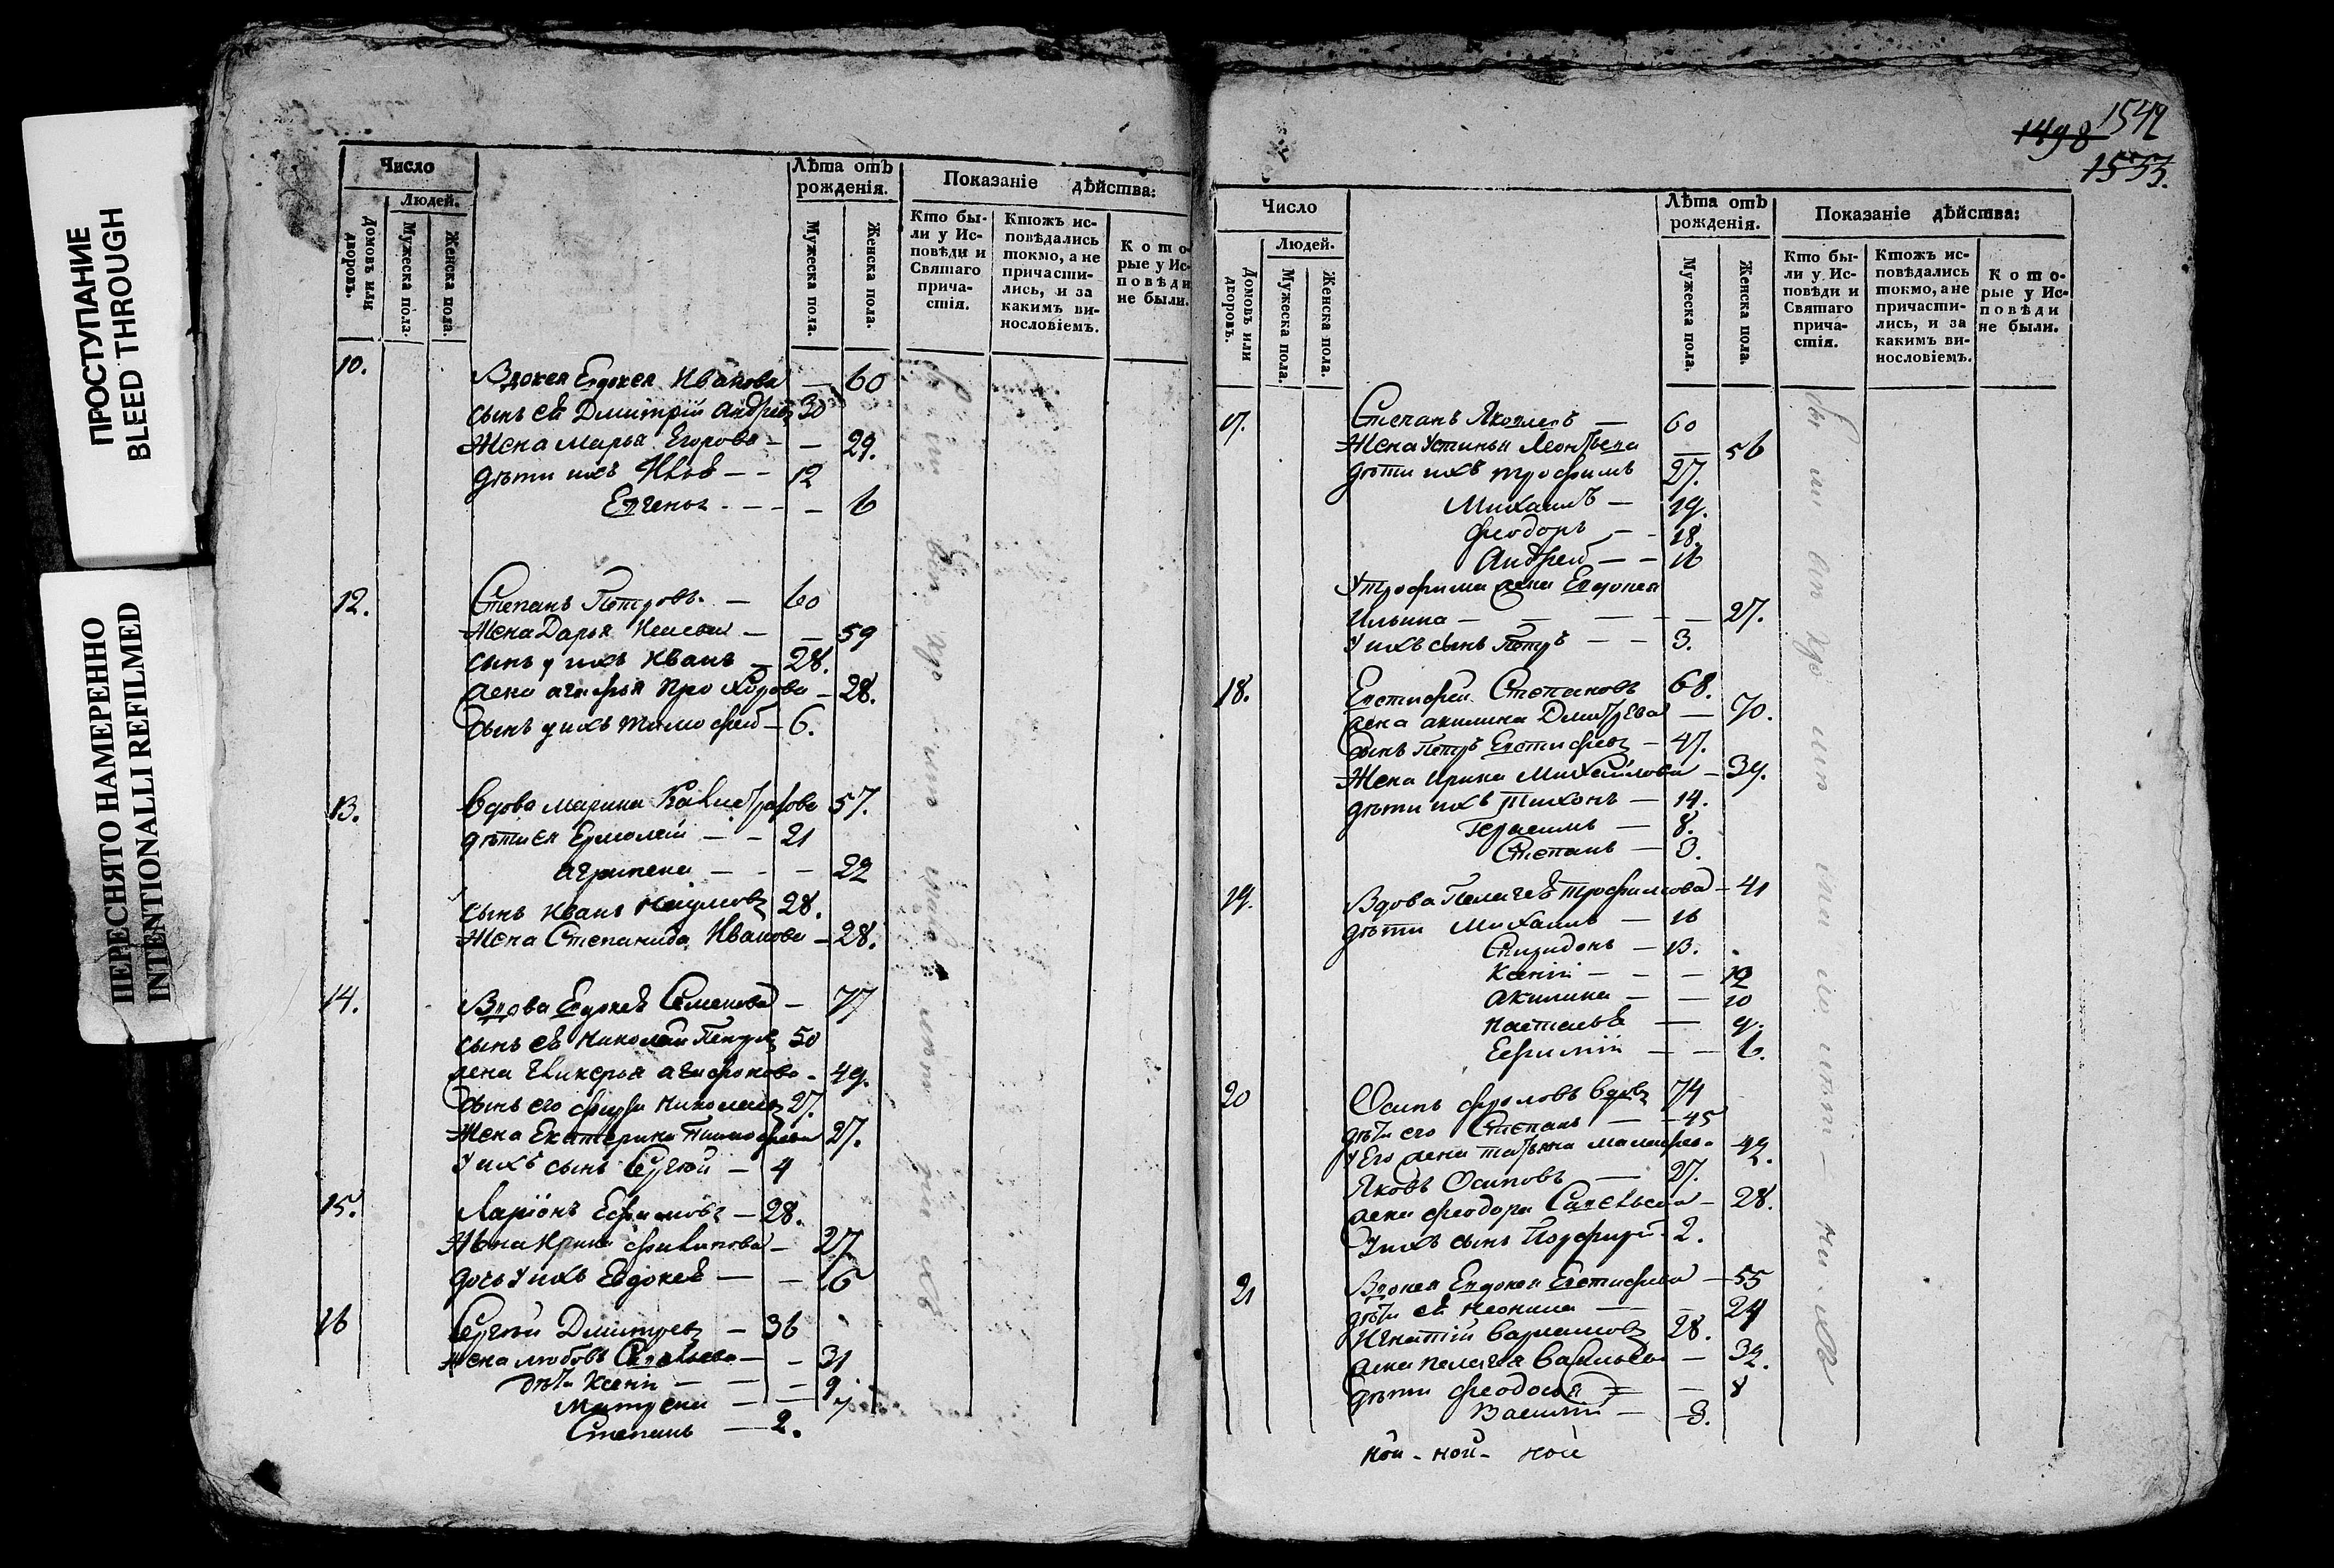 ПРОСТУПАНИЕ
BLEED THROUGH
ПЕРЕСНЯТО НАМЕРЕННО
INTENTIONALLI REFILMED
Число
Людей.
Домовъ или дворовъ.
Мужеска пола.
Женска пола.
Лѣта отъ рожденія.
Мужеска пола.
Женска пола.
Показаніе дѣйства:
Кто были у Исповѣди и Святаго причастія.
Ктожъ исповѣдались токмо, а не причастились, и за какимъ винословіемъ.
Которые у Исповѣди не были.
10. Евдокея Иванова — 60
сынъ еѣ Дмитрій Андреевъ 30
Жена Марья Егорова — — 29.
дѣти ихъ — — 12
— 6
12. Степанъ Петровъ — 60
Жена Дарья — — 59
сынъ у ихъ Иванъ — 28.
жена Агафья Прохорова — 28.
Сынъ у ихъ Тимофей — 6.
13. Вдова Марина 57.
дѣти ея Ермолай — — 21
Агрипена — — — 22
сынъ Иванъ Наумовъ 28.
Жена Степанида Иванова — 28.
14. Вдова Евдокеѣ Семенова — 77
сынъ еѣ Николай Петровъ 50
жена Гликерья Агафонова — 49.
сынъ его Николаевъ 27.
Жена Екатерина Тимофеева 27.
У ихъ сынъ Сергей — 4
15. Ларіонъ Ефимовъ — 28.
Жена Ирина Филипова — 27.
дочь у ихъ Евдокеѣ — — 6
16 Сергей Дмитревъ — 36
жена Любовь Савельева — — 31
дѣти Ксенія — — — 9
Матрена — — 7
Степанъ — 2.
1498 1542
1533.
Число
Людей.
Домовъ или дворовъ.
Мужеска пола.
Женска пола.
Лѣта отъ рожденія.
Мужеска пола.
Женска пола.
Показаніе дѣйства:
Кто были у Исповѣди и Святаго причастія.
Ктожъ исповѣдались токмо, а не причастились, и за какимъ винословіемъ.
Которые у Исповѣди не были.
17. Степанъ Яковлевъ — 60
Жена Устинья Леонтьева — 56
дѣти ихъ Трофимъ 27.
Михаилъ — 19.
Феодоръ — — 18.
Андрей — — 16
У Трофима жена Евдокея
Ильина — — — — — 27.
У ихъ сынъ Петръ — — 3.
18. Евстифей Степановъ 68.
жена Акилина Дмитрева — 70.
сынъ Петръ Евстифевъ — 47.
Жена Ирина Михайлова — 39.
дѣти ихъ Тихонъ — 14.
Герасимъ — 8.
Степанъ — 3.
19. Вдова Пелагеѣ Трофимова — 41
дѣти Михаилъ — 16
Спиридонъ — 13.
Ксенія — — — 12
Акилина — — 10
Настасьѣ — 9.
Ефимія — — 6.
20 Осипъ Фроловъ вдовъ 74
дѣти его Степанъ — — 45
У Его жена Татьяна 42.
Яковъ Осиповъ — 27.
жена Феодора Савельева — 28.
У ихъ сынъ Порфирій 2.
21 Евдокея Евстифева — 55
дѣти еѣ — — 24
Игнатій Варламовъ 28.
жена Пелагея Васильева — 32.
дѣти Феодосья — — 8
Василій — 3.
ной - ной - ной